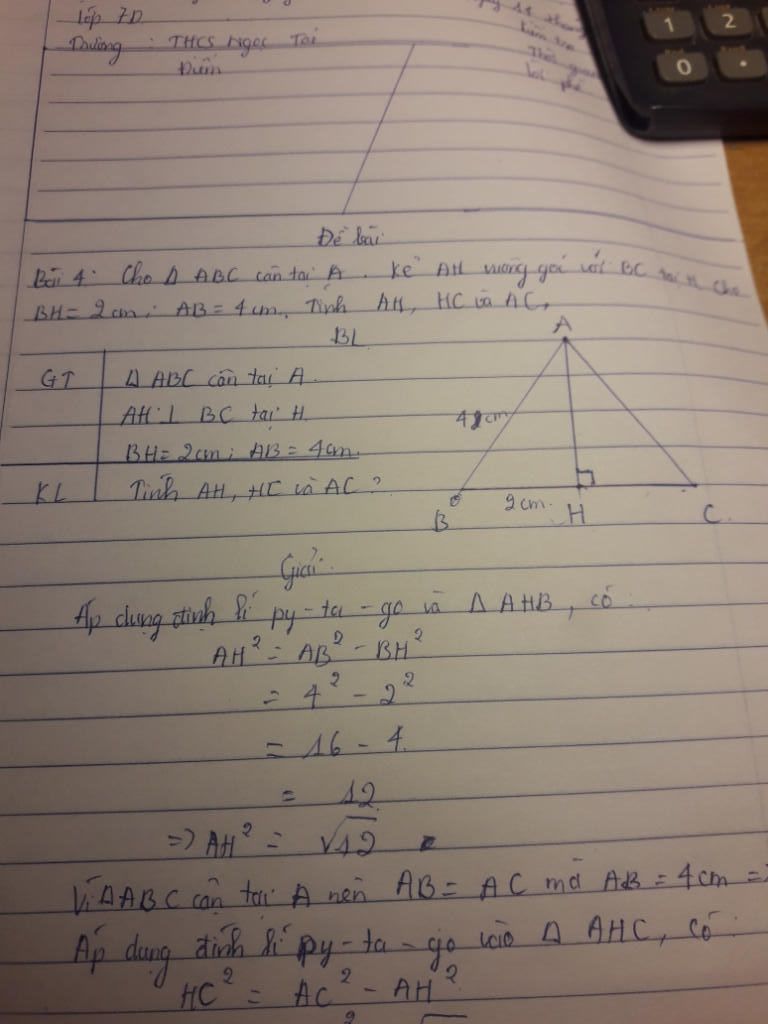 Lớp 7D
Trường : THCS Ngọc Tới
Điểm
Thời gian
Lời phê
1 2
0 .
Đề bài
Bài 4: Cho Δ ABC cân tại A. Kẻ AH vuông góc với BC tại H. Cho
BH = 2cm; AB = 4cm. Tính AH, HC và AC.
BL
GT
Δ ABC cân tại A.
AH ⊥ BC tại H
BH = 2cm; AB = 4cm.
KL
Tính AH, HC và AC?
A
4cm
B
2cm
H
C
Giải:
Áp dụng định lí py-ta-go và Δ AHB, có:
AH² = AB² - BH²
= 4² - 2²
= 16 - 4
= 12
=> AH² = √12
Vì ΔABC cân tại A nên AB = AC mà AB = 4cm =>
Áp dụng định lí py-ta-go vào Δ AHC, có:
HC² = AC² - AH²